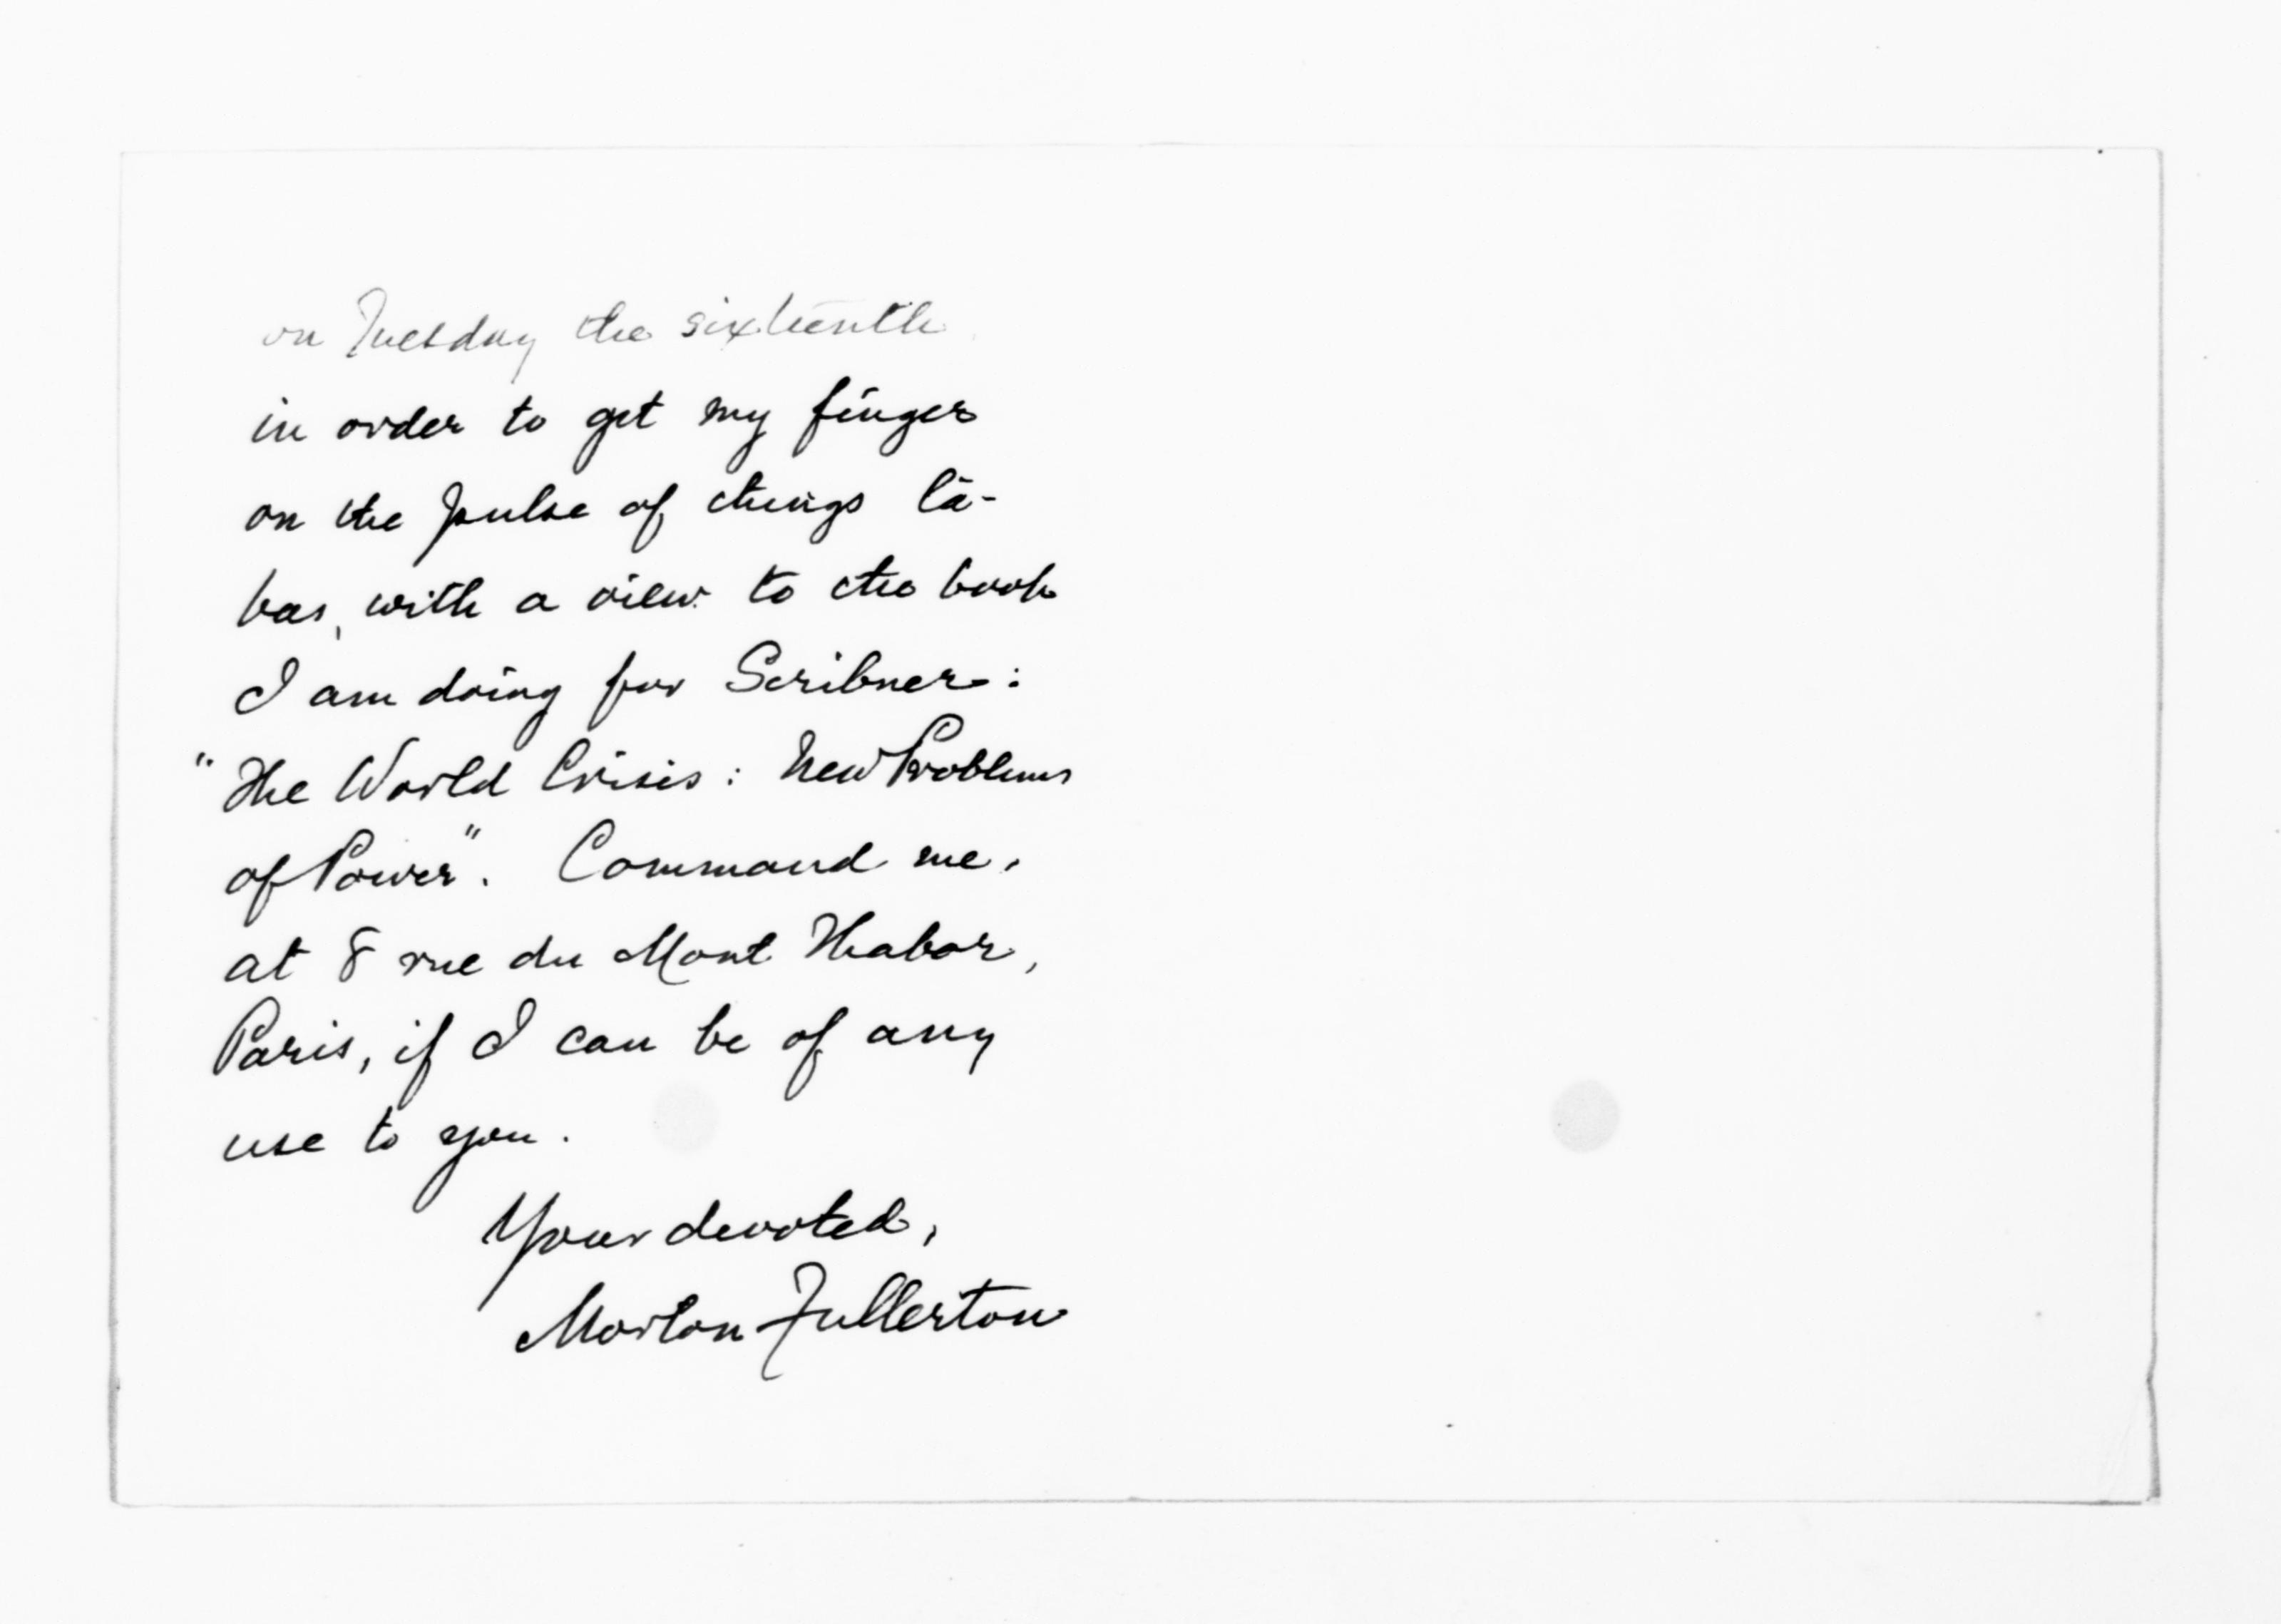 on Tuesday the sixteenth
in order to get my finger
on the pulse of things là-
bas, with a view to the book
I am doing for Scribner:
"The World Crisis: New Problems
of Power". Command me,
at 8 rue du Mont Thabor,
Paris, if I can be of any
use to you.
Your devoted,
Morton Fullerton